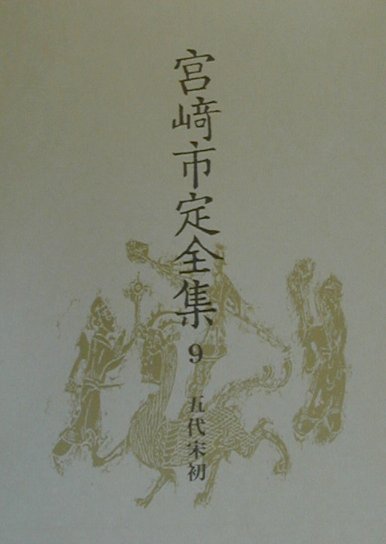 宮﨑市定全集 9 五代宋初